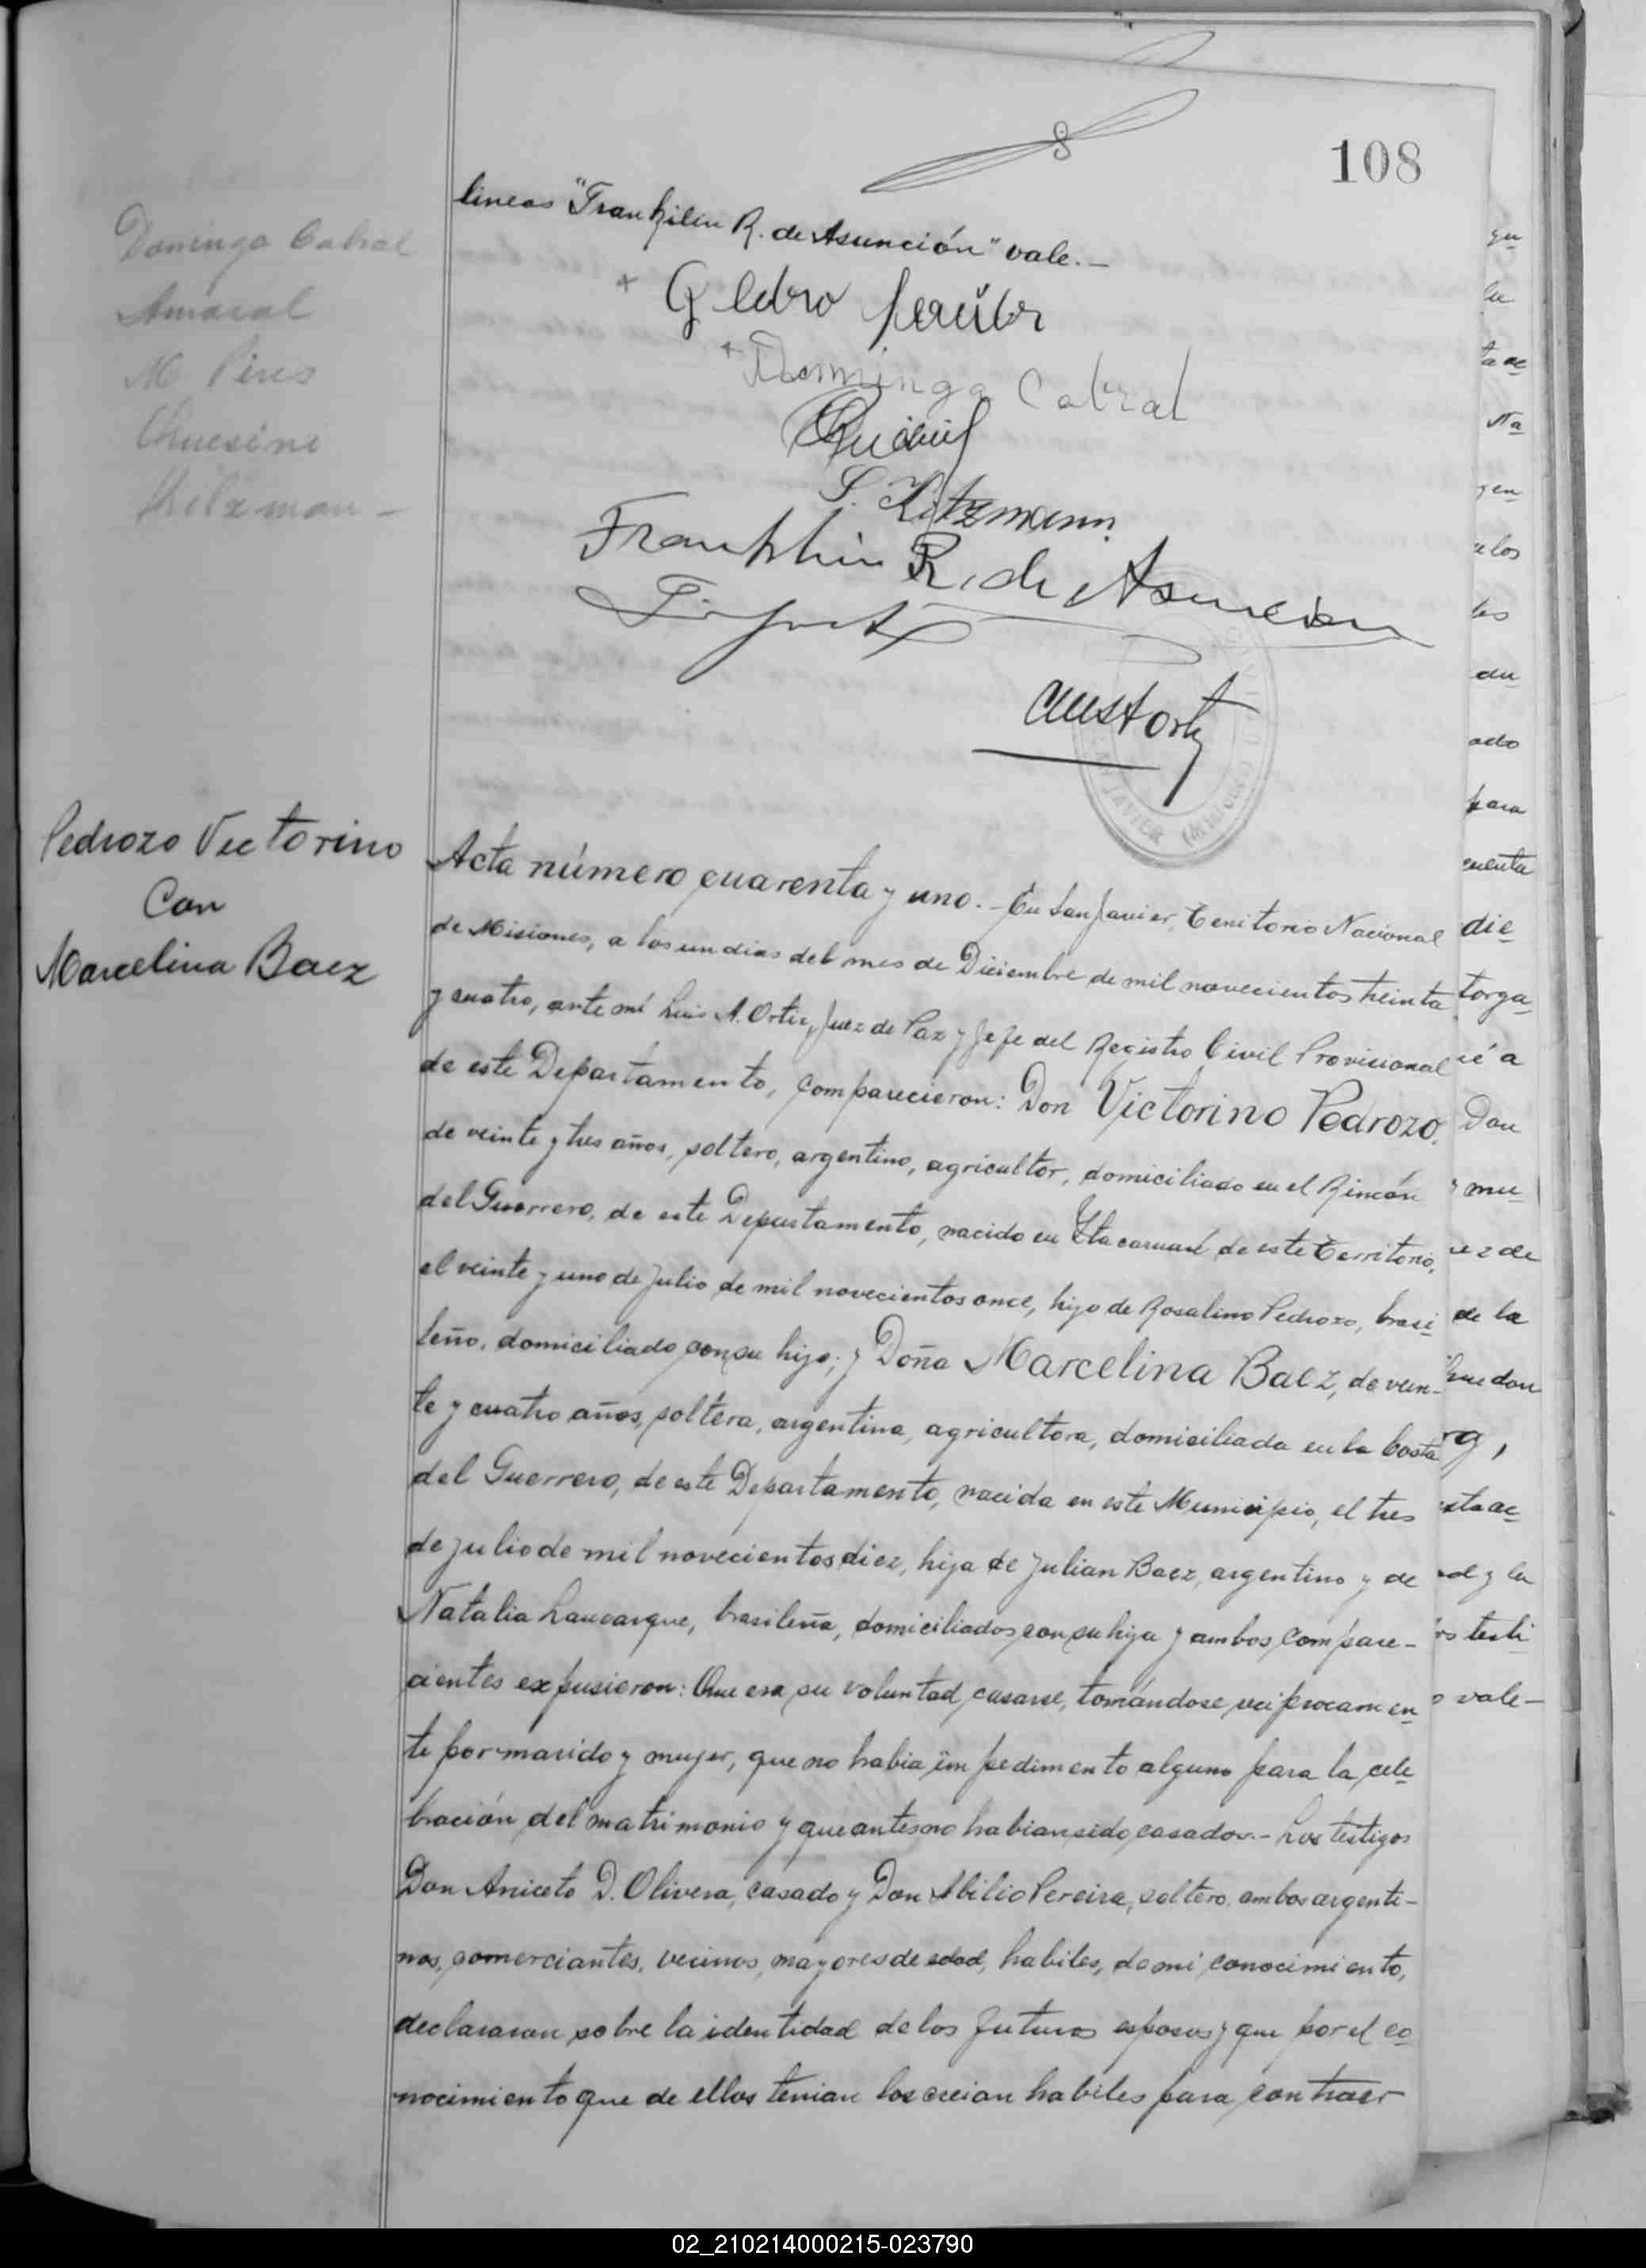 108
lineas "Frankilin R. de Asunción" vale.—
Dominga Cabral
Amaral
M Pires
Kilzman —
+
+ Dominga Cabral
S. Kitzmann
Franklin R. de Asuncion
Pedrozo Victorino
Con
Marcelina Baez
Acta número cuarenta y uno.- En San Javier, Territorio Nacional
de Misiones, a los un dias del mes de Diciembre de mil novecientos treinta
y cuatro, ante mí Luis A. Ortiz, Juez de Paz y Jefe del Registro Civil Provicional
de este Departamento, comparecieron: Don Victorino Pedrozo,
de veinte y tres años, soltero, argentino, agricultor, domiciliado en el Rincón
del Guerrero, de este Departamento, nacido en Itacaruaré de este Territorio,
el veinte y uno de Julio de mil novecientos once, hijo de Rosalino Pedrozo, brasi
leño, domiciliado con su hijo; y Doña Marcelina Baez, de vein-
te y cuatro años, soltera, argentina, agricultora, domiciliada en la Costa
del Guerrero, de este Departamento, nacida en este Municipio, el tres
de Julio de mil novecientos diez, hija de Julian Baez, argentino y de
Natalia brasileña, domiciliados con su hija y ambos compare-
cientes expusieron: Que era su voluntad casarse, tomándose reciprocamen
te por marido y mujer, que no habia impedimento alguno para la cele
bración del matrimonio y que antes no habian sido casados.- Los testigos
Don Aniceto D. Olivera, casado y Don Abilio Pereira, soltero, ambos argenti-
nos, comerciantes, vecinos, mayores de edad, habiles, de mi conocimiento,
declararan sobre la identidad de los futuros esposos y que por el co
nocimiento que de ellos tenian los creian habiles para contraer
02_210214000215-023790